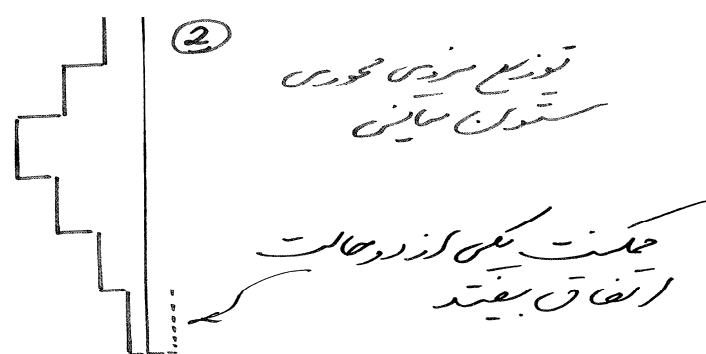 2
توزیع نیروی محوری
ستون میانی
ممکنست یکی از دو حالت
اتفاق بیفتد